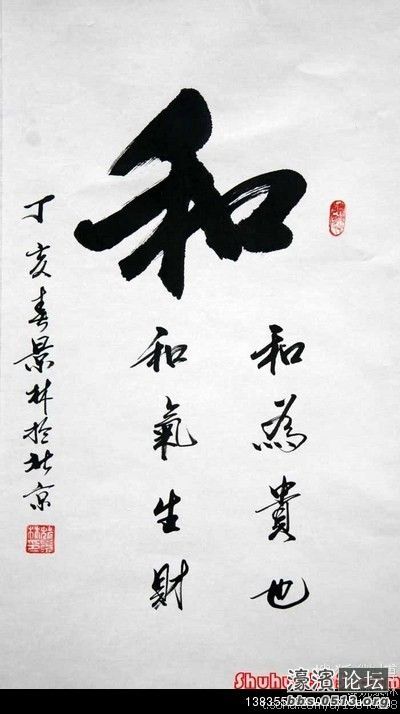 和
和為貴也
和氣生財
丁亥春景林於北京
濠濱论坛
bbs.0513.org